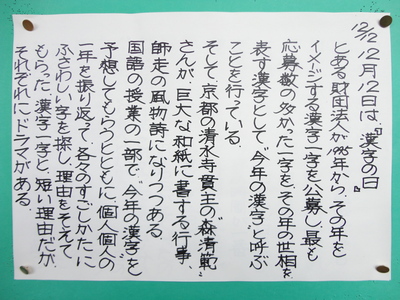 12/12
12月12日は、『漢字の日』
とある財団法人が'95年から、その年を
イメージする漢字一字を公募し、最も
応募数の多かった一字をその年の世相を
表す漢字として、“今年の漢字”と呼ぶ
ことを行っている。
そして、京都の清水寺貫主の“森清範”
さんが、巨大な和紙に書する行事、
師走の風物詩になりつつある。
国語の授業の一部で、“今年の漢字を
予想してもらうとともに、個人個人の
一年を振り返って、各々のすごしかたに
ふさわしい字を探し、理由をそえて
もらった。漢字一字と、短い理由だが、
それぞれにドラマがある。